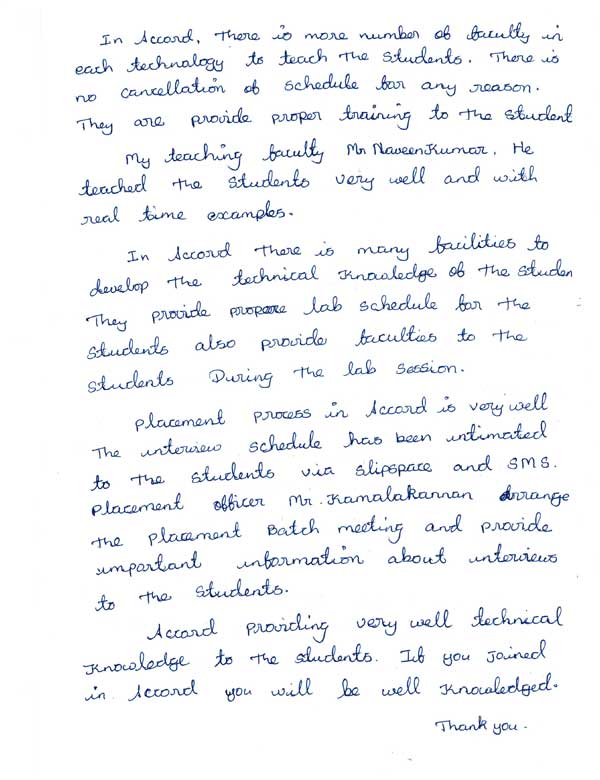 In Accord, There is more number of faculty in
each technology to teach the students. There is
no cancellation of schedule for any reason.
They are provide proper training to the student
My teaching faculty Mr NaveenKumar. He
teached the students very well and with
real time examples.
In Accord there is many facilities to
develop the technical knowledge of the studen
They provide propare lab schedule for the
students also provide faculties to the
students During the lab session.
Placement process in Accord is very well
The interview schedule has been intimated
to the students via slipspace and SMS.
Placement officer Mr. Kamalakannan Arrange
the placement Batch meeting and provide
important information about interviews
to the students.
Accord providing very well technical
knowledge to the students. If you joined
in Accord you will be well knowledged.
Thank you.